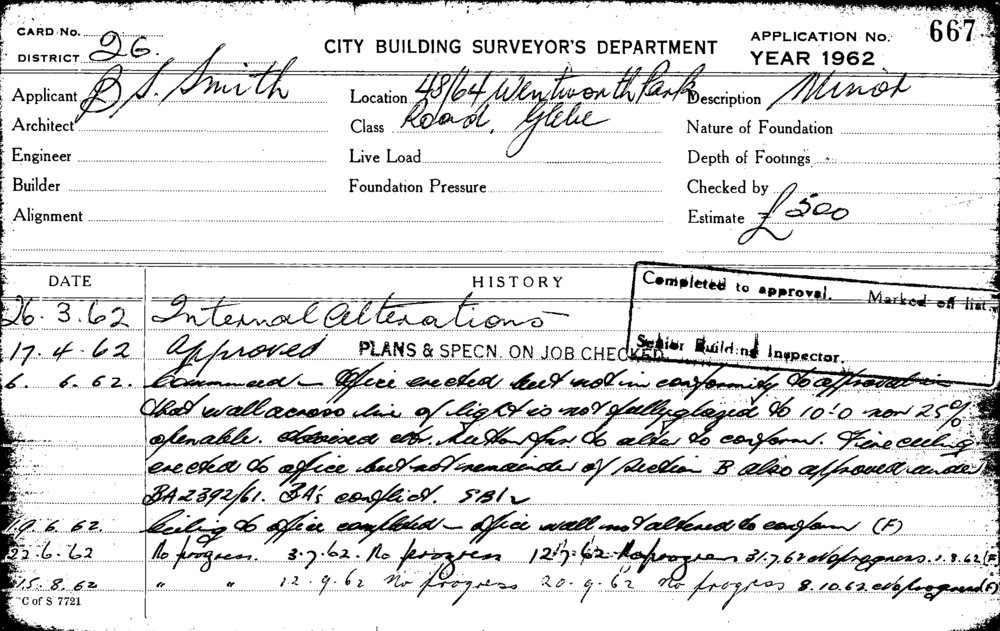 CARD No.
DISTRICT 26.
CITY BUILDING SURVEYOR'S DEPARTMENT
APPLICATION No. 667
YEAR 1962
Applicant B S. Smith
Location 48/64 Wentworth Park
Description Minor
Architect
Class Road, Glebe
Nature of Foundation
Engineer
Live Load
Depth of Footings
Builder
Foundation Pressure
Checked by
Alignment
Estimate £500
DATE
HISTORY
Completed to approval. Marked off list
Senior Building Inspector.
26.3.62 Internal Alterations
17.4.62 Approved PLANS & SPECN. ON JOB CHECKED
6. 6.62. Commenced - Office erected but not in conformity to approval in
that wall across line of light is not fully glazed to 10'0 nor 25%
openable. Advised to alter to conform. Fire ceiling
erected to office but not remainder of Section B also approved under
BA 2392/61. BA's conflict. SBI
19.6.62. Ceiling to office completed - Office wall not altered to conform (F)
22.6.62 No progress. 3.7.62. No progress 12.7.62 No progress 31.7.62 No progress. 1.8.62 (F)
15.8.62 " " 12.9.62 No progress 20.9.62 No progress 8.10.62 No progress (F)
C of S 7721